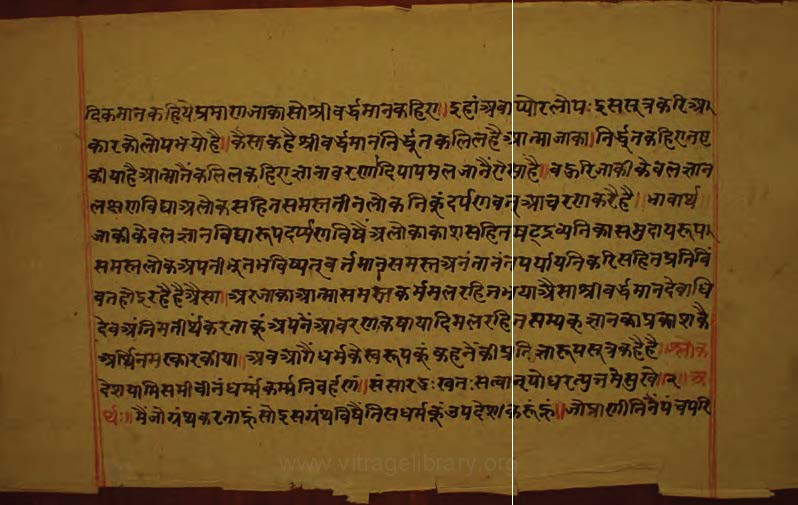 दिकमानकहियेप्रमाणजाकासोश्रीवर्द्धमानकहिए॥इहांअवाप्योरलोपःइससूत्रकरिआ
कारकोलोपभयोहै॥कैसाकहैश्रीवर्द्धमाननिर्द्धूतकलिलहैआत्माजाका॥निर्द्धूतकहिएनष्ट
कीयाहैआत्मातैंकलिलकहिएज्ञानावरणादिपापमलजानैंऐसाहै॥बऊरिजाकीकेवलज्ञान
लक्षणविद्याअलोकसहितसमस्ततीनलोकनिकूंदर्पणवत्आचरणकरैहै॥भावार्थ॥
जाकीकेवलज्ञानविद्यारूपदर्प्पणविषैंअलोकाकाशसहितषट्द्रव्यनिकासमुदायरूप
समस्तलोकअपनीभूतभविष्यत्वर्तमानसमस्तअनंतानंतपर्यायनिकरिसहितप्रतिविं
वतहोइरहैहैऐसा॥अरजाकाआत्मासमस्तकर्ममलरहितभयाऐसाश्रीवर्द्धमानदेवाधि
देवअंतिमतीर्थकरताकूंअपनैंआवरणकषायादिमलरहितसम्यक्ज्ञानकाप्रकाशकै
अर्थिनमस्कारकीया॥अवआगैंधर्मकेस्वरूपकूंकहनेंकीप्रतिज्ञारूपसूत्रकहैहै॥श्लोक
देशयामिसमीचीनंधर्म्मंकर्म्मनिवर्हणं॥संसारदुःखतःसत्वान्योधरत्युत्तमेसुखे॥२॥अ
र्थः॥मैंजोग्रंथकरताहूंसोइसग्रंथविषैंतिसधर्मकूंउपदेशकरूंहूं॥जोप्राणीनिनैंपंचपरि
www.vitragelibrary.org